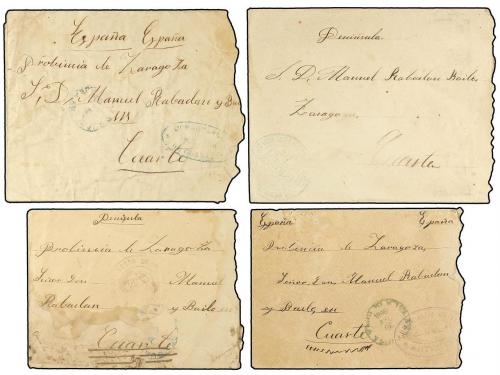 España España
Probincia de Zaragoza
S, D, Manuel Rabadan y
en
Cuarte
Peninsula.
S. D. Manuel Rabadan Bailo
Zaragoza
Cuarte
Peninsula
Probincia de Zaragoza
Señor Don Manuel
Rabadan y Bailo en
Cuarte
España España
Probencia de Zaragoza,
Señor Don Manuel Rabadan
y Bailo en
Cuarte